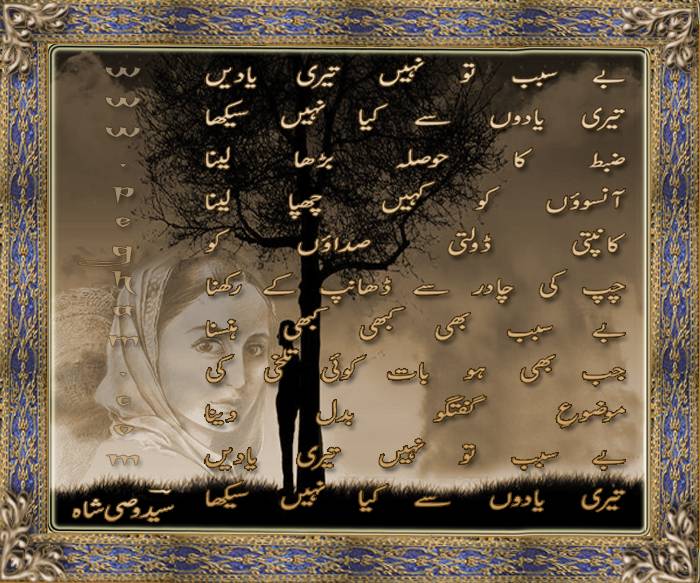 بے سبب تو نہیں تیری یادیں
تیری یادوں سے کیا نہیں سیکھا
ضبط کا حوصلہ بڑھا لینا
آنسوؤں کو کہیں چھپا لینا
کانپتی ڈولتی صداؤں کو
چپ کی چادر سے ڈھانپ کے رکھنا
بے سبب بھی کبھی کبھی ہنسنا
جب بھی ہو بات کوئی تلخی کی
موضوع گفتگو بدل دینا
بے سبب تو نہیں تیری یادیں
تیری یادوں سے کیا نہیں سیکھا
سید وصی شاہ
www.pegham.com